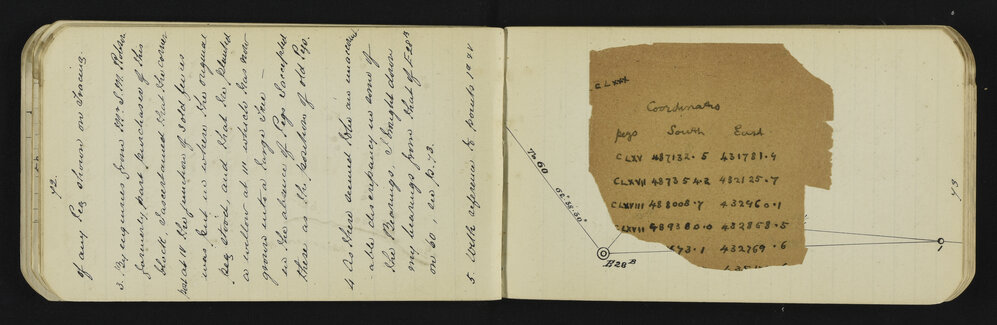 72.
of any Peg shown on Tracing.
3. By enquiries from Mr. S. M.
formerly part purchaser of this
block, I ascertained that the corner
post at W the junction of 3 old fences
was put in where the original
peg stood, and that he planted
a willow at W which has now
grown into a large tree —
in the absence of Pegs I accepted
these as the position of old Pegs.
4. As there seemed to be an unaccount
able discrepancy in some of
the Bearings, I brought down
my bearings from that of
on 60, see p. 73.
5. With reference to points
73
CLXXX
Coordinates
pegs South East
CLXV 487132.5 431781.9
CLXVII 487354.2 432125.7
CLXVIII 488008.7 432960.1
489380.0 432858.5
73.1 432769.6
To 60
H28B